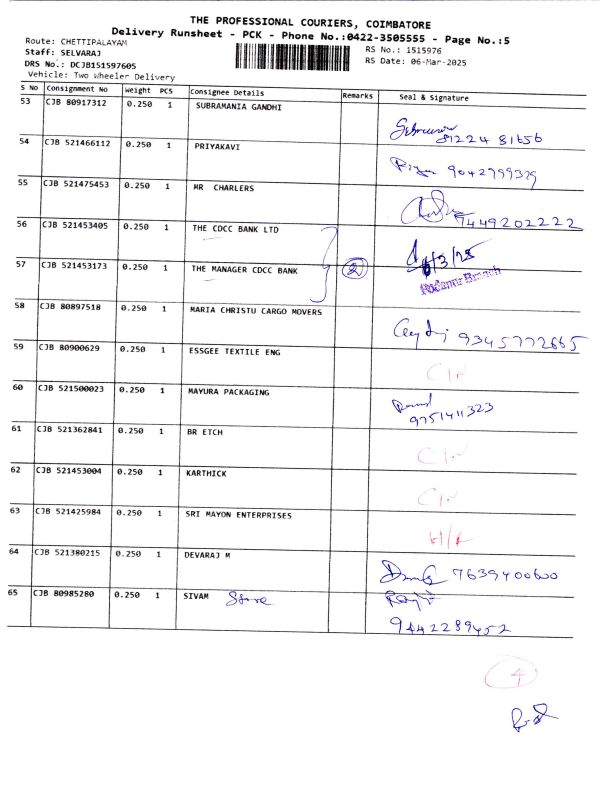 THE PROFESSIONAL COURIERS, COIMBATORE
Delivery Runsheet - PCK - Phone No.:0422-3505555 - Page No.:5
Route: CHETTIPALAYAM
Staff: SELVARAJ
DRS No.: DCJB151597605
Vehicle: Two Wheeler Delivery
RS No.: 1515976
RS Date: 06-Mar-2025
S No Consignment No Weight PCS Consignee Details Remarks Seal & Signature
53 CJB 80917312 0.250 1 SUBRAMANIA GANDHI
81224 81656
54 CJB 521466112 0.250 1 PRIYAKAVI
9042799379
55 CJB 521475453 0.250 1 MR CHARLERS
9449202222
56 CJB 521453405 0.250 1 THE CDCC BANK LTD
57 CJB 521453173 0.250 1 THE MANAGER CDCC BANK 2 6/3/25
Branch
58 CJB 80897518 0.250 1 MARIA CHRISTU CARGO MOVERS
9345772665
59 CJB 80900629 0.250 1 ESSGEE TEXTILE ENG
60 CJB 521500023 0.250 1 MAYURA PACKAGING
9751411323
61 CJB 521362841 0.250 1 BR ETCH
62 CJB 521453004 0.250 1 KARTHICK
63 CJB 521425984 0.250 1 SRI MAYON ENTERPRISES
64 CJB 521380215 0.250 1 DEVARAJ M
7639400600
65 CJB 80985280 0.250 1 SIVAM Store
9442289452
4